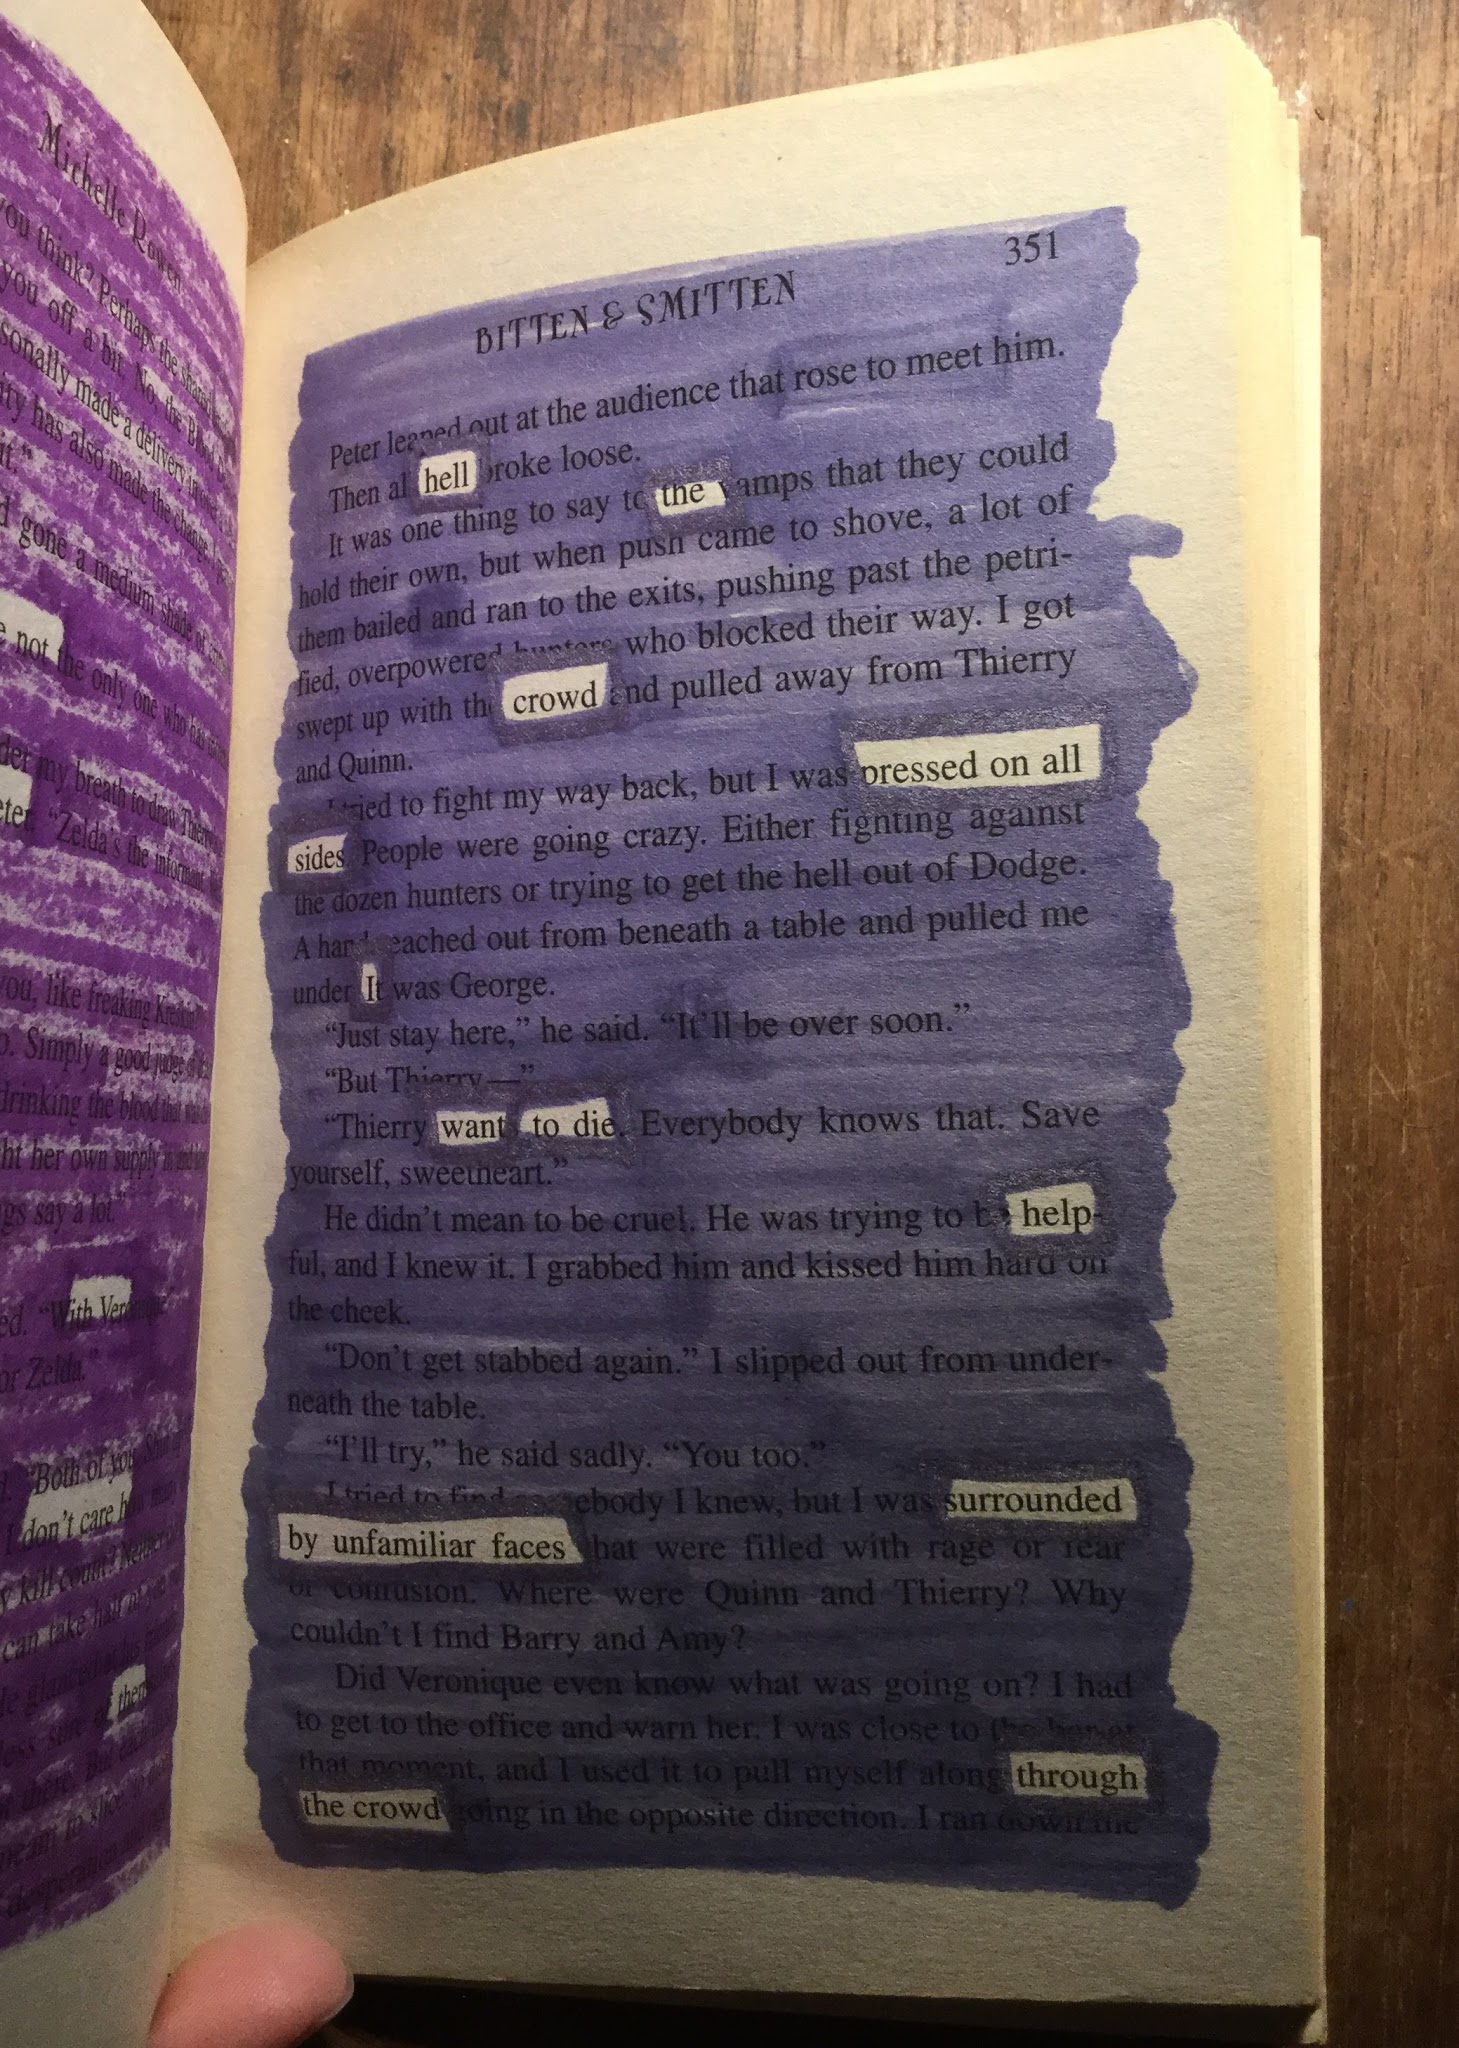 Michelle Rowen
you think? Perhaps the
you off a bit. No, the Blood
sonally made a delivery
ity has also made the change
it."
gone a medium shade of
not the only one who has
my breath to draw Thierry
"Zelda's the informant.
you, like freaking
Simply a good judge of
drinking the blood that
ht her own supply
gs say a lot."
ed. "With Veronique
or Zelda."
"Both of you
I don't care
kill count? Neither
can take half of
them
351
BITTEN & SMITTEN
Peter leaped out at the audience that rose to meet him.
Then al hell broke loose.
It was one thing to say to the vamps that they could
hold their own, but when push came to shove, a lot of
them bailed and ran to the exits, pushing past the petri-
fied, overpowered hunters who blocked their way. I got
swept up with the crowd and pulled away from Thierry
and Quinn.
I tried to fight my way back, but I was pressed on all
sides. People were going crazy. Either fighting against
the dozen hunters or trying to get the hell out of Dodge.
A hand reached out from beneath a table and pulled me
under It was George.
"Just stay here," he said. "It'll be over soon."
"But Thierry—"
"Thierry want to die. Everybody knows that. Save
yourself, sweetheart."
He didn't mean to be cruel. He was trying to be help-
ful, and I knew it. I grabbed him and kissed him hard on
the cheek.
"Don't get stabbed again." I slipped out from under-
neath the table.
"I'll try," he said sadly. "You too."
I tried to find somebody I knew, but I was surrounded
by unfamiliar faces that were filled with rage or fear
or confusion. Where were Quinn and Thierry? Why
couldn't I find Barry and Amy?
Did Veronique even know what was going on? I had
to get to the office and warn her. I was close to the
that moment, and I used it to pull myself along through
the crowd going in the opposite direction. I ran down the